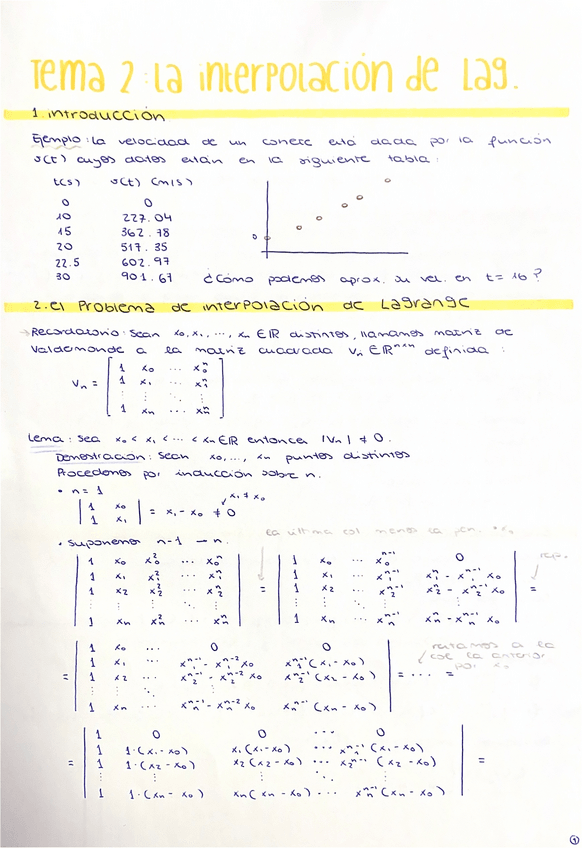 Tema 2: La interpolación de Lag.
1. introducción
Ejemplo: la velocidad de un cohete está dada por la función
v(t) cuyos datos están en la siguiente tabla:
t(s) v(t) (m/s)
0 0
10 227.04
15 362.78
20 517.35
22.5 602.97
30 901.67
0
¿Cómo podemos aprox. su vel. en t = 16?
2. el Problema de interpolación de Lagrange
→ Recordatorio: Sean x₀, x₁, ..., xₙ ∈ ℝ distintos, llamamos matriz de
Valdemonde a la matriz cuadrada Vₙ ∈ ℝⁿˣⁿ definida:
Vₙ = [ 1 x₀ ... x₀ⁿ
1 x₁ ... x₁ⁿ
⋮ ⋮ ⋱ ⋮
1 xₙ ... xₙⁿ ]
Lema: Sea x₀ < x₁ < ... < xₙ ∈ ℝ entonces |Vₙ| ≠ 0.
Demostración: Sean x₀, ..., xₙ puntos distintos
Procedemos por inducción sobre n.
• n = 1
x₁ ≠ x₀
| 1 x₀ |
| 1 x₁ | = x₁ - x₀ ≠ 0
• Suponemos n-1 → n.
la última col menos la pen. · x₀
| 1 x₀ x₀² ... x₀ⁿ | = | 1 x₀ ... x₀ⁿ⁻¹ 0 | =
| 1 x₁ x₁² ... x₁ⁿ | | 1 x₁ ... x₁ⁿ⁻¹ x₁ⁿ - x₁ⁿ⁻¹ x₀ |
| 1 x₂ x₂² ... x₂ⁿ | | 1 x₂ ... x₂ⁿ⁻¹ x₂ⁿ - x₂ⁿ⁻¹ x₀ |
| ⋮ ⋮ ⋮ ⋱ ⋮ | | ⋮ ⋮ ⋱ ⋮ ⋮ |
| 1 xₙ xₙ² ... xₙⁿ | | 1 xₙ ... xₙⁿ⁻¹ xₙⁿ - xₙⁿ⁻¹ x₀ |
restamos a la
col la anterior
por x₀
= | 1 x₀ ... 0 0 | = ... =
| 1 x₁ ... x₁ⁿ⁻¹ - x₁ⁿ⁻² x₀ x₁ⁿ⁻¹ (x₁ - x₀) |
| 1 x₂ ... x₂ⁿ⁻¹ - x₂ⁿ⁻² x₀ x₂ⁿ⁻¹ (x₂ - x₀) |
| ⋮ ⋮ ⋱ ⋮ |
| 1 xₙ ... xₙⁿ⁻¹ - xₙⁿ⁻² x₀ xₙⁿ⁻¹ (xₙ - x₀) |
= | 1 0 0 ... 0 | =
| 1 1·(x₁ - x₀) x₁(x₁ - x₀) ... x₁ⁿ⁻¹ (x₁ - x₀) |
| 1 1·(x₂ - x₀) x₂(x₂ - x₀) ... x₂ⁿ⁻¹ (x₂ - x₀) |
| ⋮ ⋮ ⋮ ⋱ ⋮ |
| 1 1·(xₙ - x₀) xₙ(xₙ - x₀) ... xₙⁿ⁻¹ (xₙ - x₀) |
1